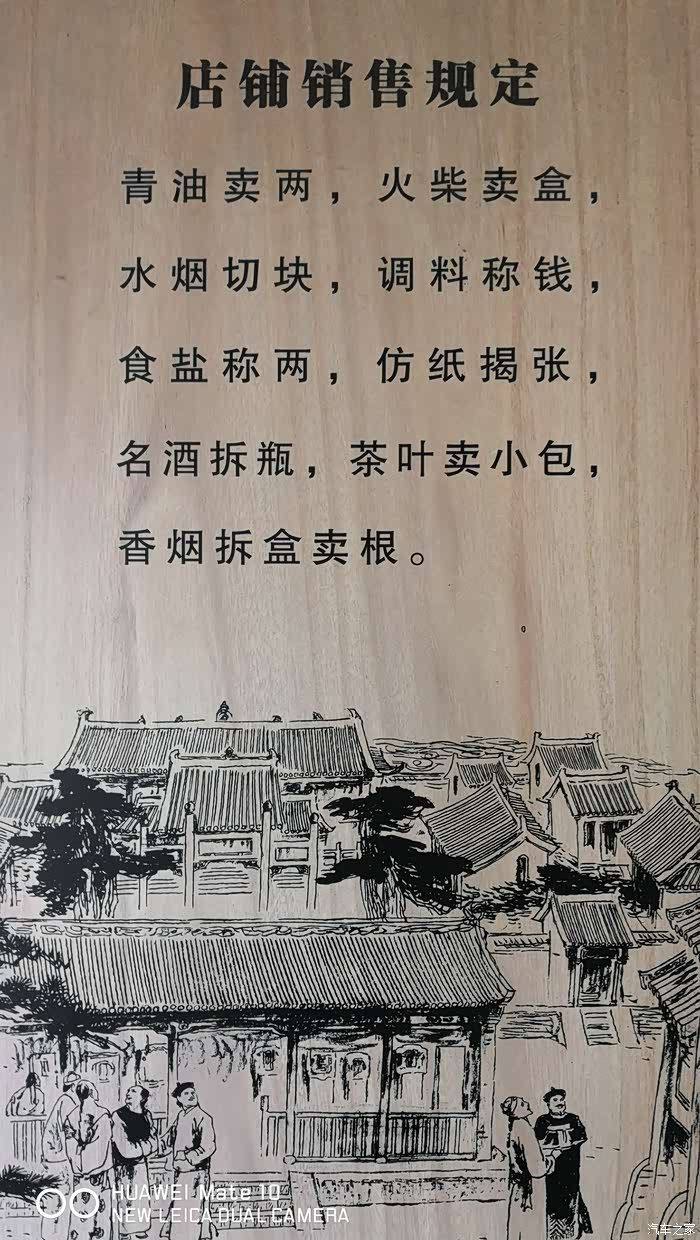 店铺销售规定
青油卖两，火柴卖盒，
水烟切块，调料称钱，
食盐称两，仿纸揭张，
名酒拆瓶，茶叶卖小包，
香烟拆盒卖根。
HUAWEI Mate 10
NEW LEICA DUAL CAMERA
汽车之家